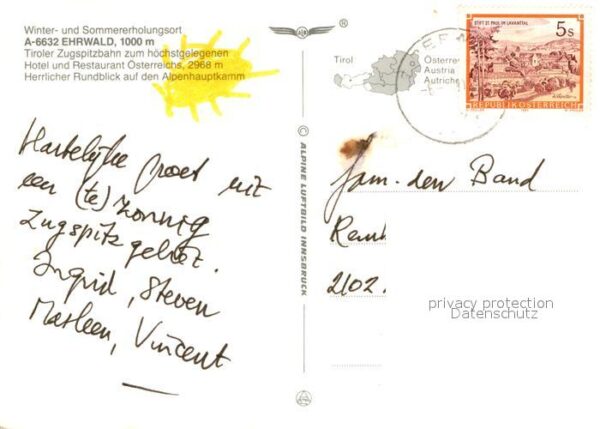 Winter- und Sommererholungsort
A-6632 EHRWALD, 1000 m
Tiroler Zugspitzbahn zum höchstgelegenen
Hotel und Restaurant Österreichs, 2968 m
Herrlicher Rundblick auf den Alpenhauptkamm
Hartelijke groet uit
een (te) zonnig
Zugspitzgebied.
Ingrid, Steven
Marleen, Vincent
© ALPINE LUFTBILD INNSBRUCK
®
Tirol
Österre
Austria
Autriche
STIFT ST. PAUL IM LAVANTTAL
5s
REPUBLIK ÖSTERREICH
Fam. den Band
2102.
privacy protection
Datenschutz